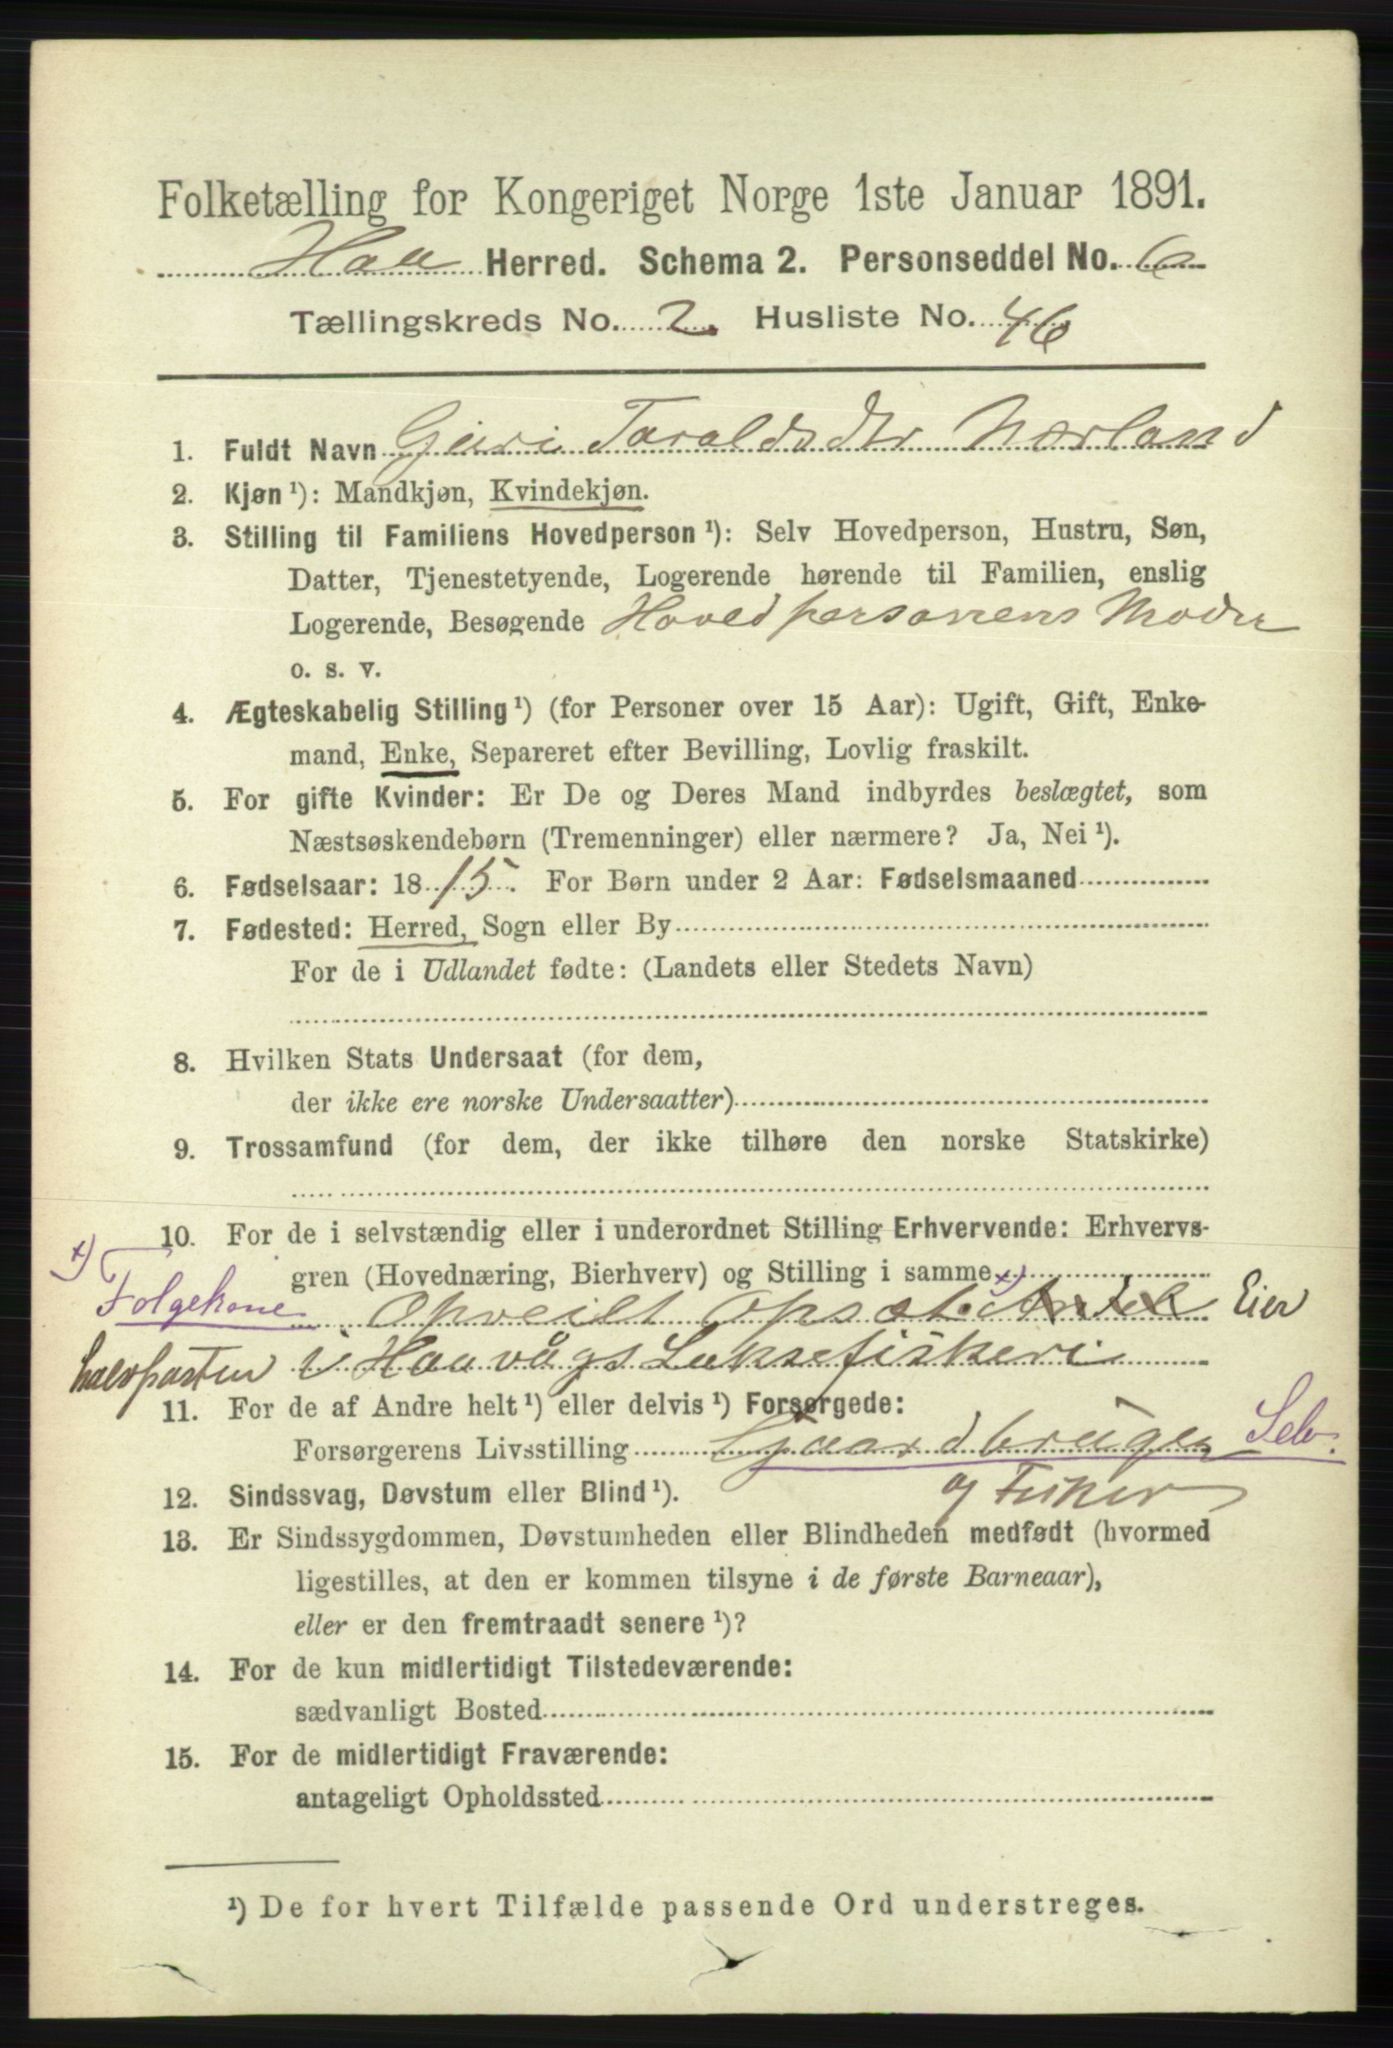 Folketælling for Kongeriget Norge 1ste Januar 1891.
Haa Herred. Schema 2. Personseddel No. 6
Tællingskreds No. 2. Husliste No. 46
1. Fuldt Navn Geiri Taraldsdtr Nærland
2. Kjøn ¹): Mandkjøn, Kvindekjøn.
3. Stilling til Familiens Hovedperson ¹): Selv Hovedperson, Hustru, Søn,
Datter, Tjenestetyende, Logerende hørende til Familien, enslig
Logerende, Besøgende Hovedpersonens Moder
o. s. v.
4. Ægteskabelig Stilling ¹) (for Personer over 15 Aar): Ugift, Gift, Enke-
mand, Enke, Separeret efter Bevilling, Lovlig fraskilt.
5. For gifte Kvinder: Er De og Deres Mand indbyrdes beslægtet, som
Næstsøskendebørn (Tremenninger) eller nærmere? Ja, Nei ¹).
6. Fødselsaar: 1815. For Børn under 2 Aar: Fødselsmaaned
7. Fødested: Herred, Sogn eller By
For de i Udlandet fødte: (Landets eller Stedets Navn)
8. Hvilken Stats Undersaat (for dem,
der ikke ere norske Undersaatter)
9. Trossamfund (for dem, der ikke tilhøre den norske Statskirke)
10. For de i selvstændig eller i underordnet Stilling Erhvervende: Erhvervs-
gren (Hovednæring, Bierhverv) og Stilling i samme x)
x) Folgekone Eier
halvparten i Haavågs Laksefiskeri
11. For de af Andre helt ¹) eller delvis ¹) Forsørgede:
Forsørgerens Livsstilling Gaardbruger Selv.
og Fisker
12. Sindssvag, Døvstum eller Blind ¹).
13. Er Sindssygdommen, Døvstumheden eller Blindheden medfødt (hvormed
ligestilles, at den er kommen tilsyne i de første Barneaar),
eller er den fremtraadt senere ¹)?
14. For de kun midlertidigt Tilstedeværende:
sædvanligt Bosted
15. For de midlertidigt Fraværende:
antageligt Opholdssted
¹) De for hvert Tilfælde passende Ord understreges.